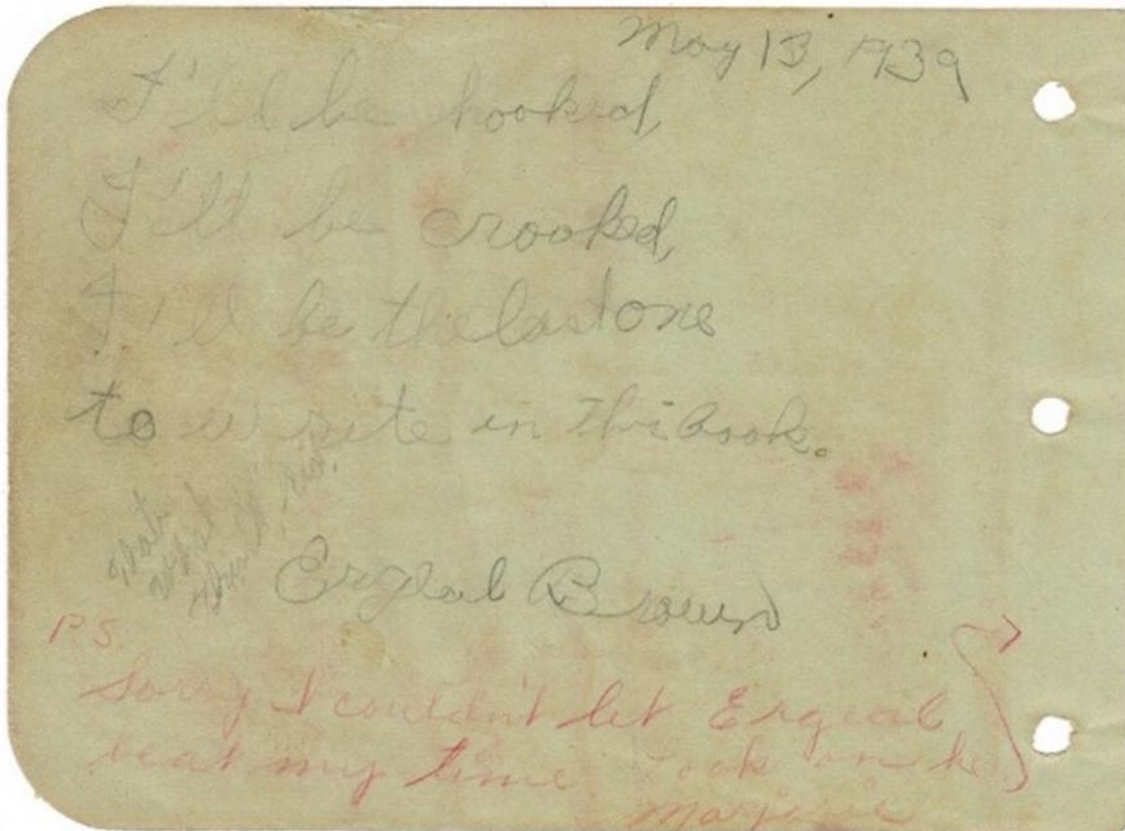 May 13, 1939
I'll be hooked,
I'll be crooked,
I'll be the last one
to write in this book.
that's
what
Ergeal Brown
P.S.
Sorry I couldn't let Ergeal
beat my time Look on he
Marjorie